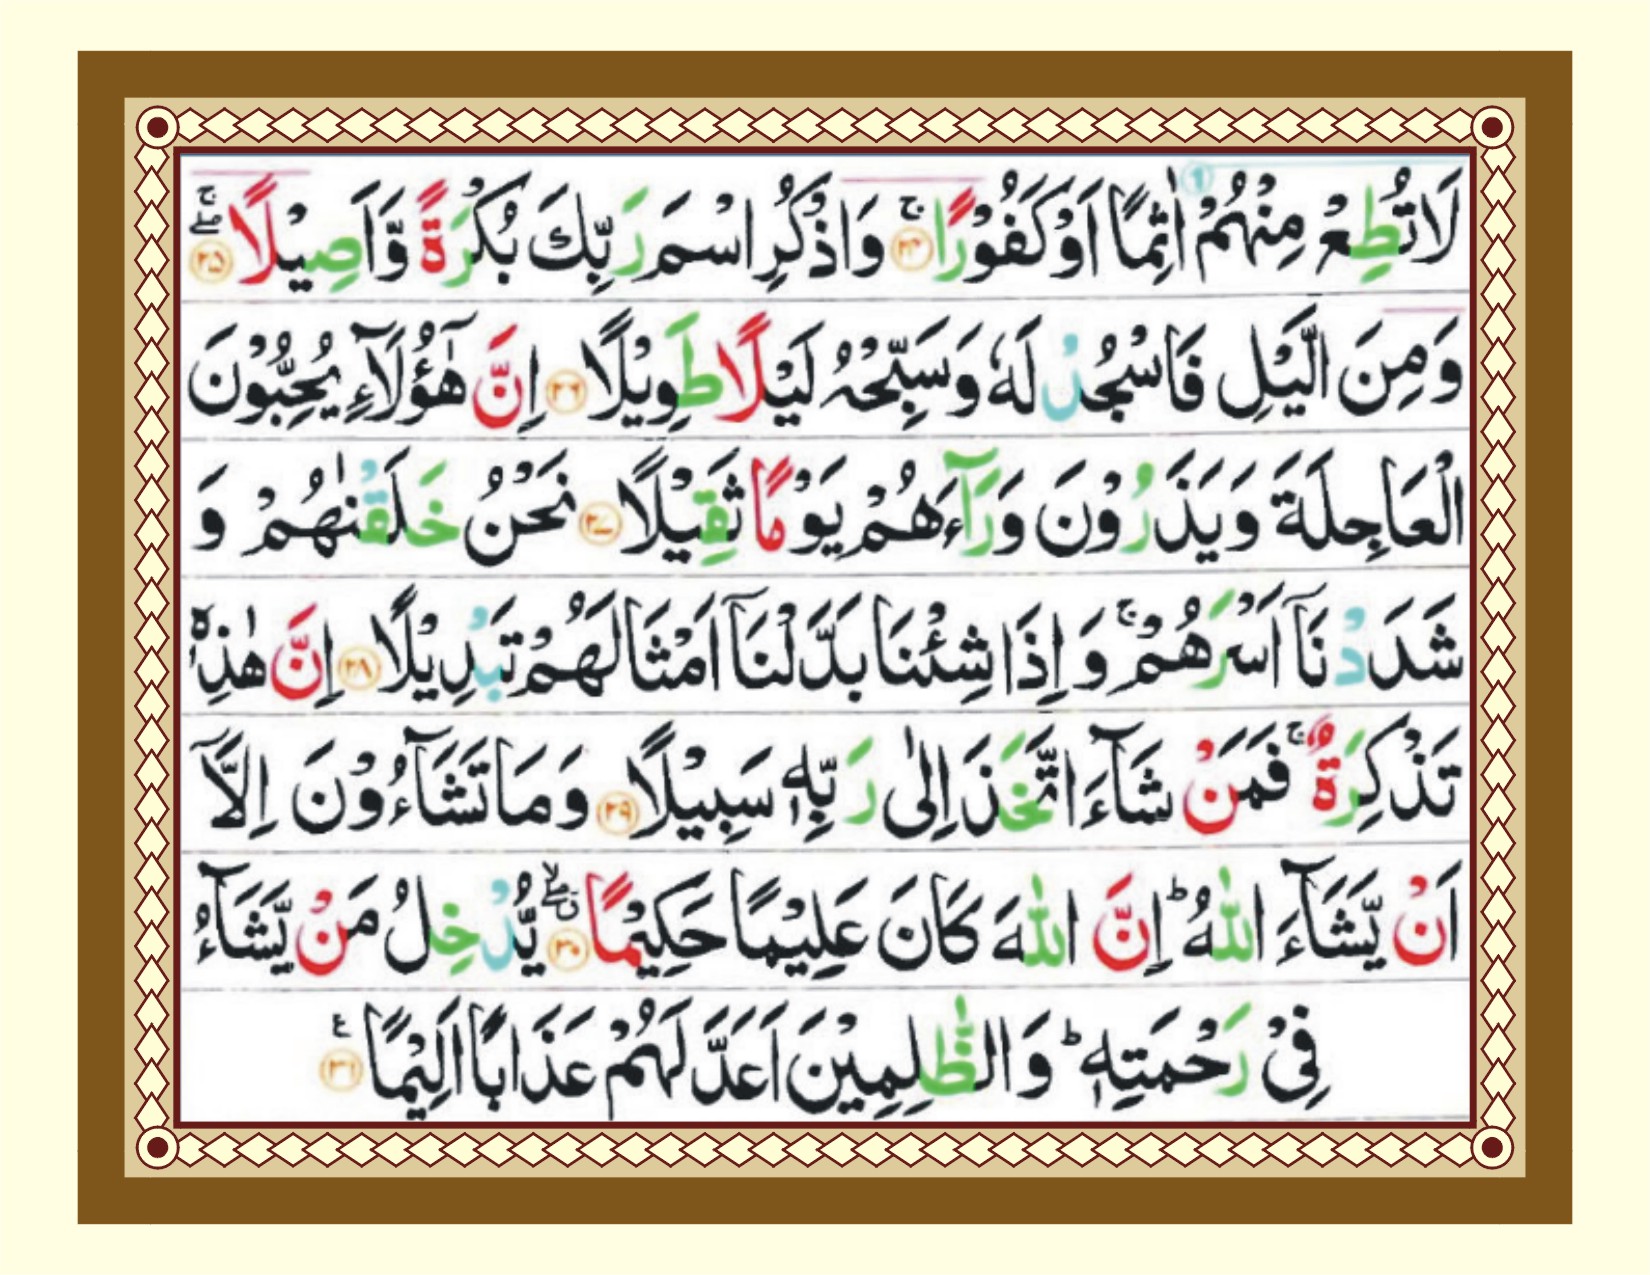 لَا تُطِعْ مِنْهُمْ اٰثِمًا اَوْ كَفُوْرًا ۚ ﴿۲۴﴾ وَاذْكُرِ اسْمَ رَبِّكَ بُكْرَةً وَّاَصِيْلًا ۖۚ ﴿۲۵﴾
وَمِنَ الَّيْلِ فَاسْجُدْ لَهٗ وَسَبِّحْهُ لَيْلًا طَوِيْلًا ﴿۲۶﴾ اِنَّ هٰٓؤُلَآءِ يُحِبُّوْنَ
الْعَاجِلَةَ وَيَذَرُوْنَ وَرَآءَهُمْ يَوْمًا ثَقِيْلًا ﴿۲۷﴾ نَحْنُ خَلَقْنٰهُمْ وَ
شَدَدْنَآ اَسْرَهُمْ ۚ وَ اِذَا شِئْنَا بَدَّلْنَآ اَمْثَالَهُمْ تَبْدِيْلًا ﴿۲۸﴾ اِنَّ هٰذِهٖ
تَذْكِرَةٌ ۚ فَمَنْ شَآءَ اتَّخَذَ اِلٰى رَبِّهٖ سَبِيْلًا ﴿۲۹﴾ وَمَا تَشَآءُوْنَ اِلَّآ
اَنْ يَّشَآءَ اللّٰهُ ؕ اِنَّ اللّٰهَ كَانَ عَلِيْمًا حَكِيْمًا ﴿۳۰﴾ يُّدْخِلُ مَنْ يَّشَآءُ
فِيْ رَحْمَتِهٖ ؕ وَ الظّٰلِمِيْنَ اَعَدَّ لَهُمْ عَذَابًا اَلِيْمًا ﴿۳۱﴾ ع